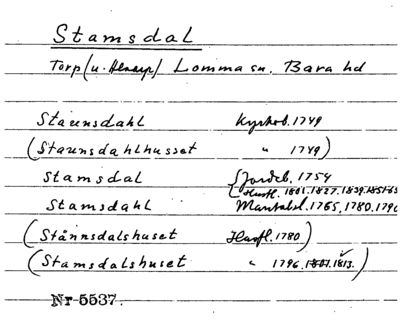 Stamsdal
Torp (u. Alnarp) Lomma sn. Bara hd
Staunsdahl Kyrkob. 1749
(Staunsdahlhusset " 1749)
Stamsdal Jordeb. 1754
(Husfl. 1801. 1827. 1839. 1851-65
Stamsdahl Mantalsl. 1765, 1780. 1790
(Stånnsdalshuset Husfl. 1780)
(Stamsdalshuset " 1796. 1807. 1813.)
Nr 5537.